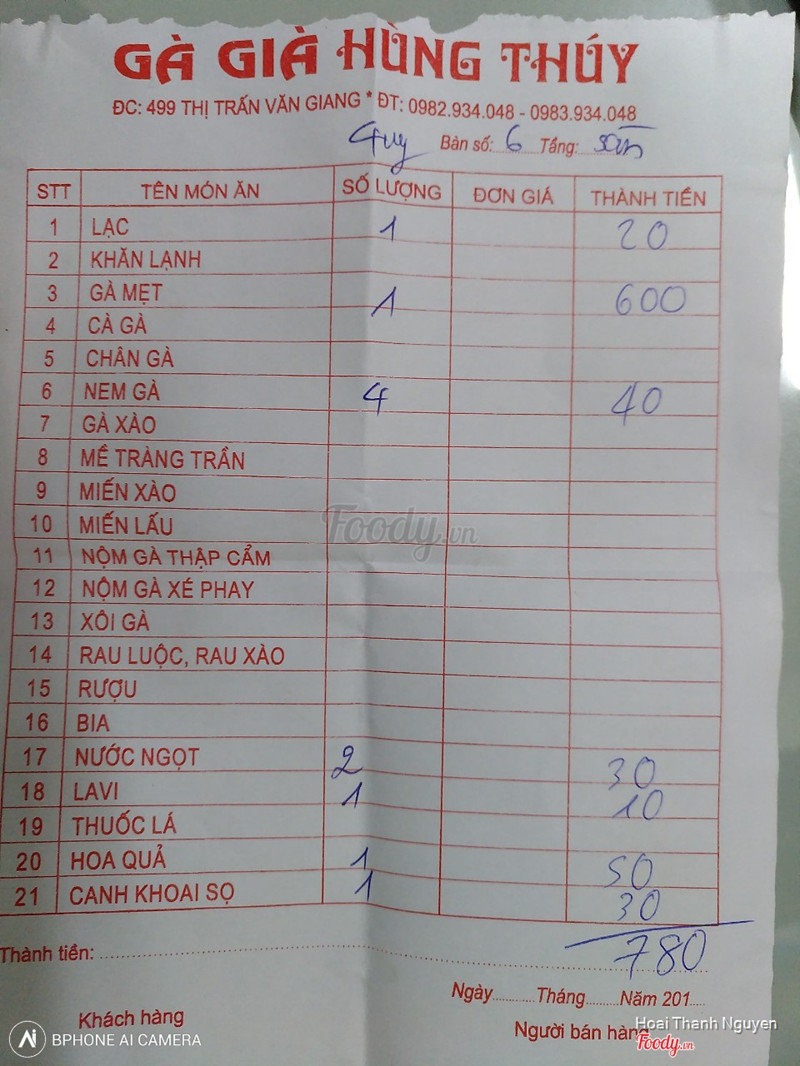 GÀ GIÀ HÙNG THÚY
ĐC: 499 THỊ TRẤN VĂN GIANG * ĐT: 0982.934.048 - 0983.934.048
Bàn số: 6 Tầng:
STT TÊN MÓN ĂN SỐ LƯỢNG ĐƠN GIÁ THÀNH TIỀN
1 LẠC 1 20
2 KHĂN LẠNH
3 GÀ MẸT 1 600
4 CÀ GÀ
5 CHÂN GÀ
6 NEM GÀ 4 40
7 GÀ XÀO
8 MỀ TRÀNG TRẦN
9 MIẾN XÀO
10 MIẾN LẤU
Foody.vn
11 NỘM GÀ THẬP CẨM
12 NỘM GÀ XÉ PHAY
13 XÔI GÀ
14 RAU LUỘC, RAU XÀO
15 RƯỢU
16 BIA
17 NƯỚC NGỌT 2 30
18 LAVI 1 10
19 THUỐC LÁ
20 HOA QUẢ 1 50
21 CANH KHOAI SỌ 1 30
Thành tiền: 780
Ngày Tháng Năm 201
Khách hàng Người bán hàng
Hoai Thanh Nguyen
BPHONE AI CAMERA
Foody.vn